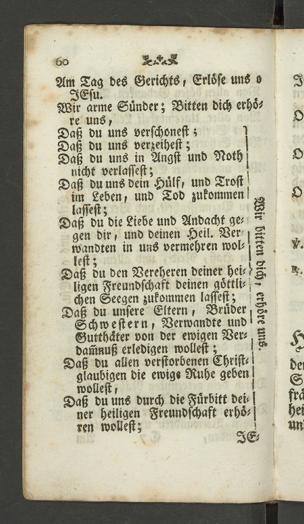 60
Am Tag des Gerichts, Erlöse uns o
JEsu.
Wir arme Sünder; Bitten dich erhö-
re uns,
Daß du uns verschonest;
Daß du uns verzeihest;
Daß du uns in Angst und Noth
nicht verlassest;
Daß du uns dein Hülf, und Trost
im Leben, und Tod zukommen
lassest;
Daß du die Liebe und Andacht ge-
gen dir, und deinen Heil. Ver-
wandten in uns vermehren wol-
lest;
Daß du den Vereheren deiner hei-
ligen Freundschaft deinen göttli-
chen Seegen zukommen lassest;
Daß du unsere Eltern, Brüder
Schwestern, Verwandte und
Gutthäter von der ewigen Ver-
dam̄nuß erledigen wollest;
Daß du allen verstorbenen Christ-
glaubigen die ewige Ruhe geben
wollest,
Daß du uns durch die Fürbitt dei-
ner heiligen Freundschaft erhö-
ren wollest;
Wir bitten dich, erhöre uns.
JE-